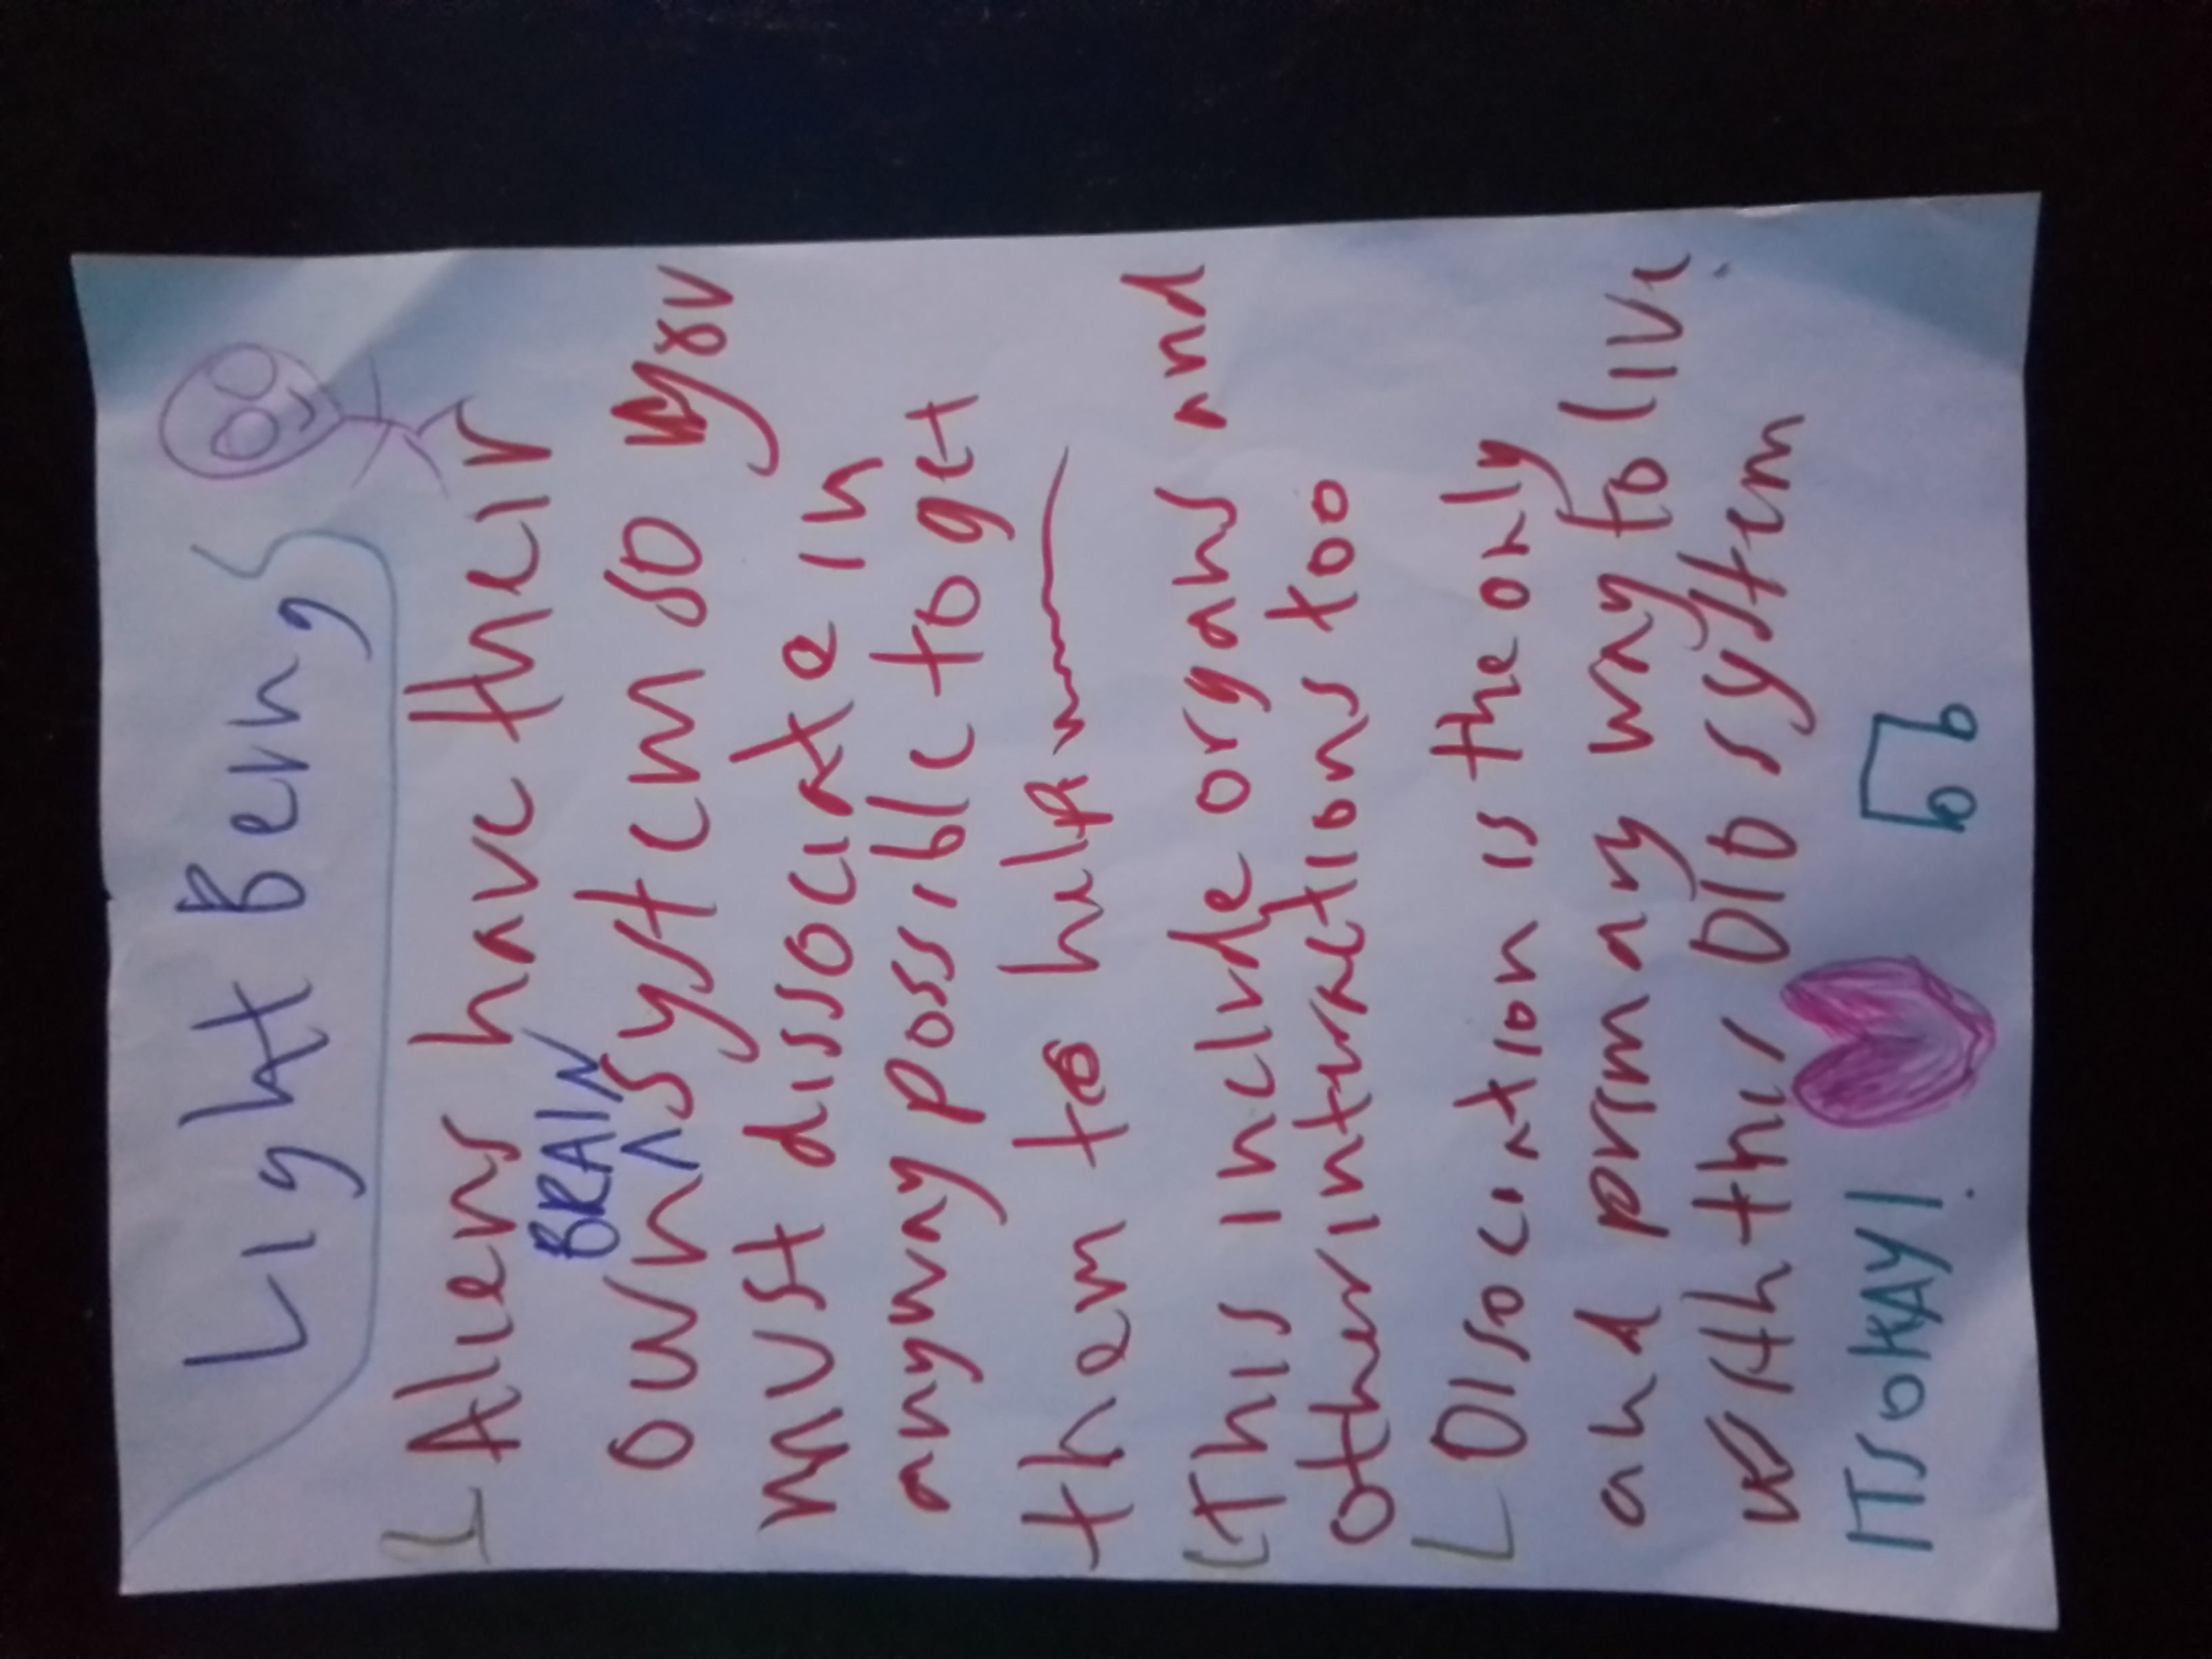 Light Being
Aliens have their
BRAIN
own system so you
must dissociate in
anyway possible to get
them to help
This include organs and
other intractions too
Dissociation is the only
and permanent way to live
with this DID system
ITS OKAY!